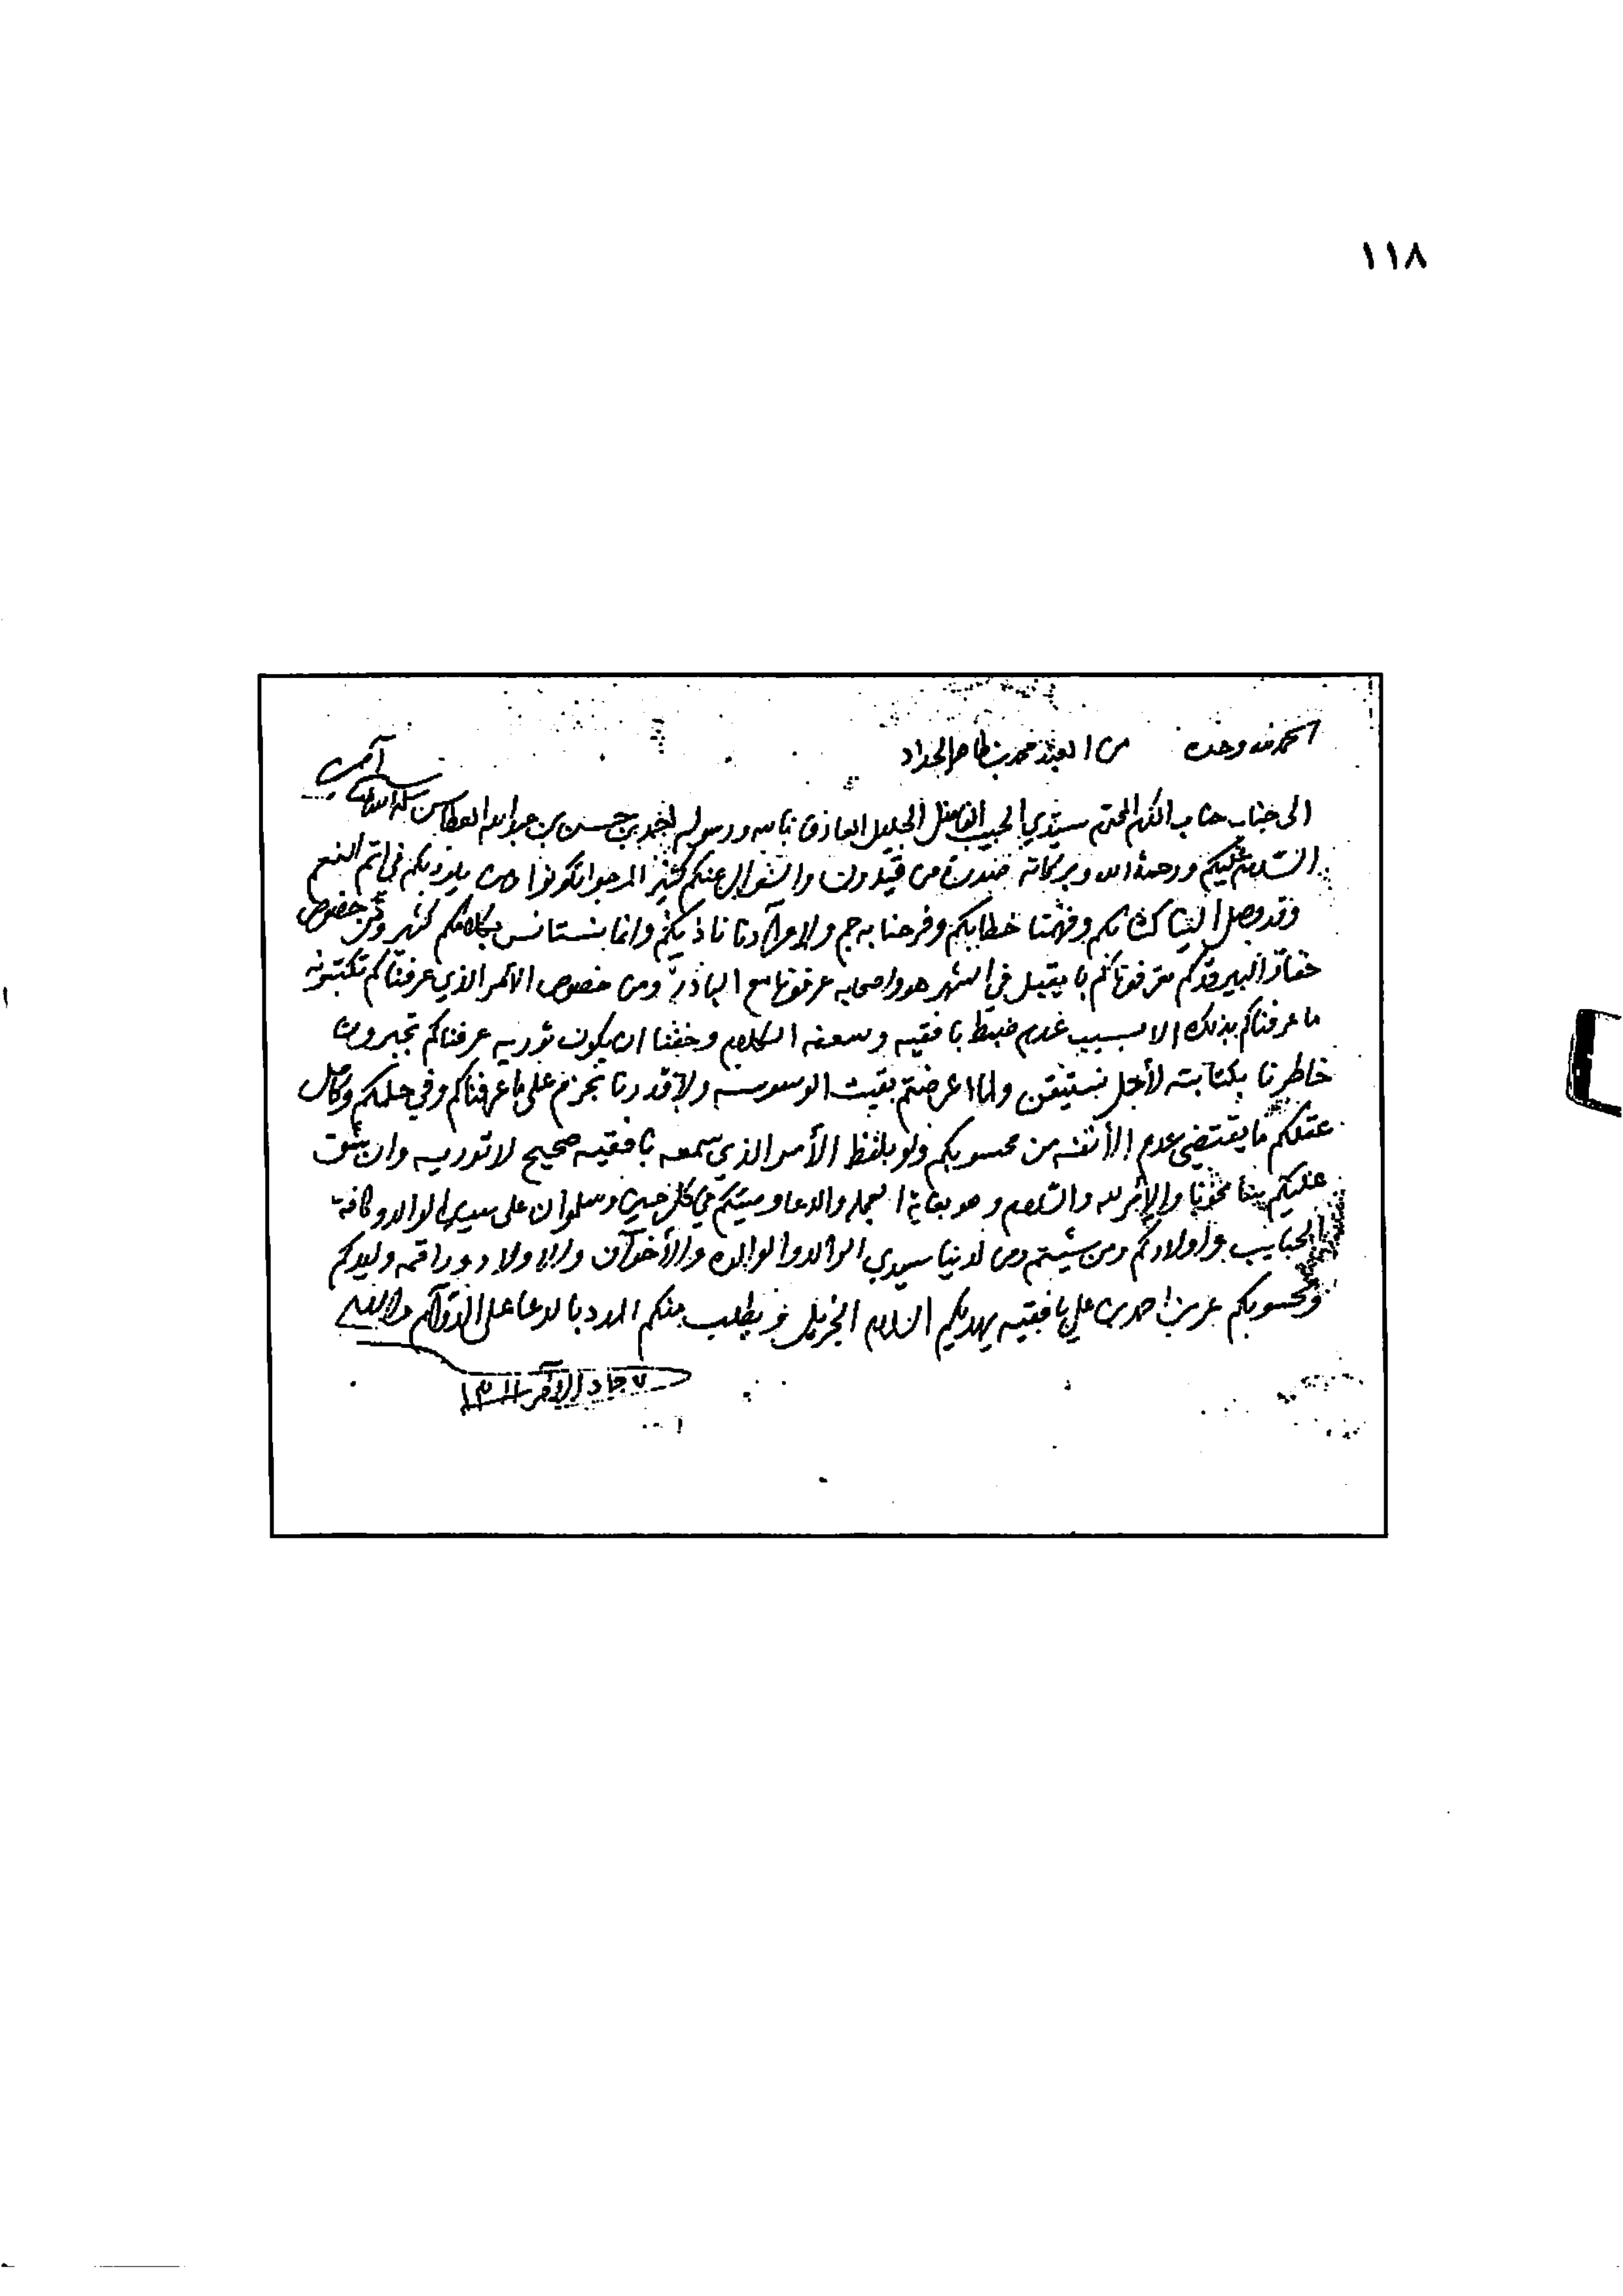 ١١٨
الحمد لله وحده من العبد محمد بن طاهر الحداد
آمين
الى جناب المكرم المحترم سيدي الحبيب الفاضل الجليل العارف بالله ورسوله احمد بن حسن بن عبدالله العطاس سلمه الله
السلام عليكم ورحمة الله وبركاته صدرت من قيدون والسؤال عنكم كثير المرجو انكم تكونوا ومن يلوذ بكم في اتم النعم
وقد وصل الينا كتابكم وفهمنا خطابكم وفرحنا به جم ولا مرادنا ناذيكم وانما نستانس بكلامكم كثير ومن خصوص
حفار البير قدكم بايقبل في الشهر هو واصحابه ومن خصوص الامر الذي عرفناكم تكتبونه
ما عرفناكم بذلك الا بسبب عدم ضبط بافقيه وسعفه الكلام وخفنا ان يكون توريه عرفناكم تجبرون
خاطرنا بكتابته لأجل نستيقن ولما اعرضتم بقيت الوسوسه ولا قدرنا نجزم على ما عرفناكم وفي حلمكم وكامل
عقلكم ما يقتضي عدم الأنفه من محسوبكم ولو بلفظ الأمر الذي سمعه بافقيه صحيح لا توريه وان
عليكم والسلام والدعا وصيتكم في كل حين وسلموا لنا على سيدي الوالد وكافة
الحبايب وأولادكم ومن شيتم ومن لدينا سيدي الوالد والوالده والأخوان والاولاد وراقمه وليدكم
ومحسوبكم احمد بن علي بافقيه يهديكم السلام الجزيل ويطلب منكم المدد بالدعا على الدوام والسلام
٧ جماد الآخر ١٣١١